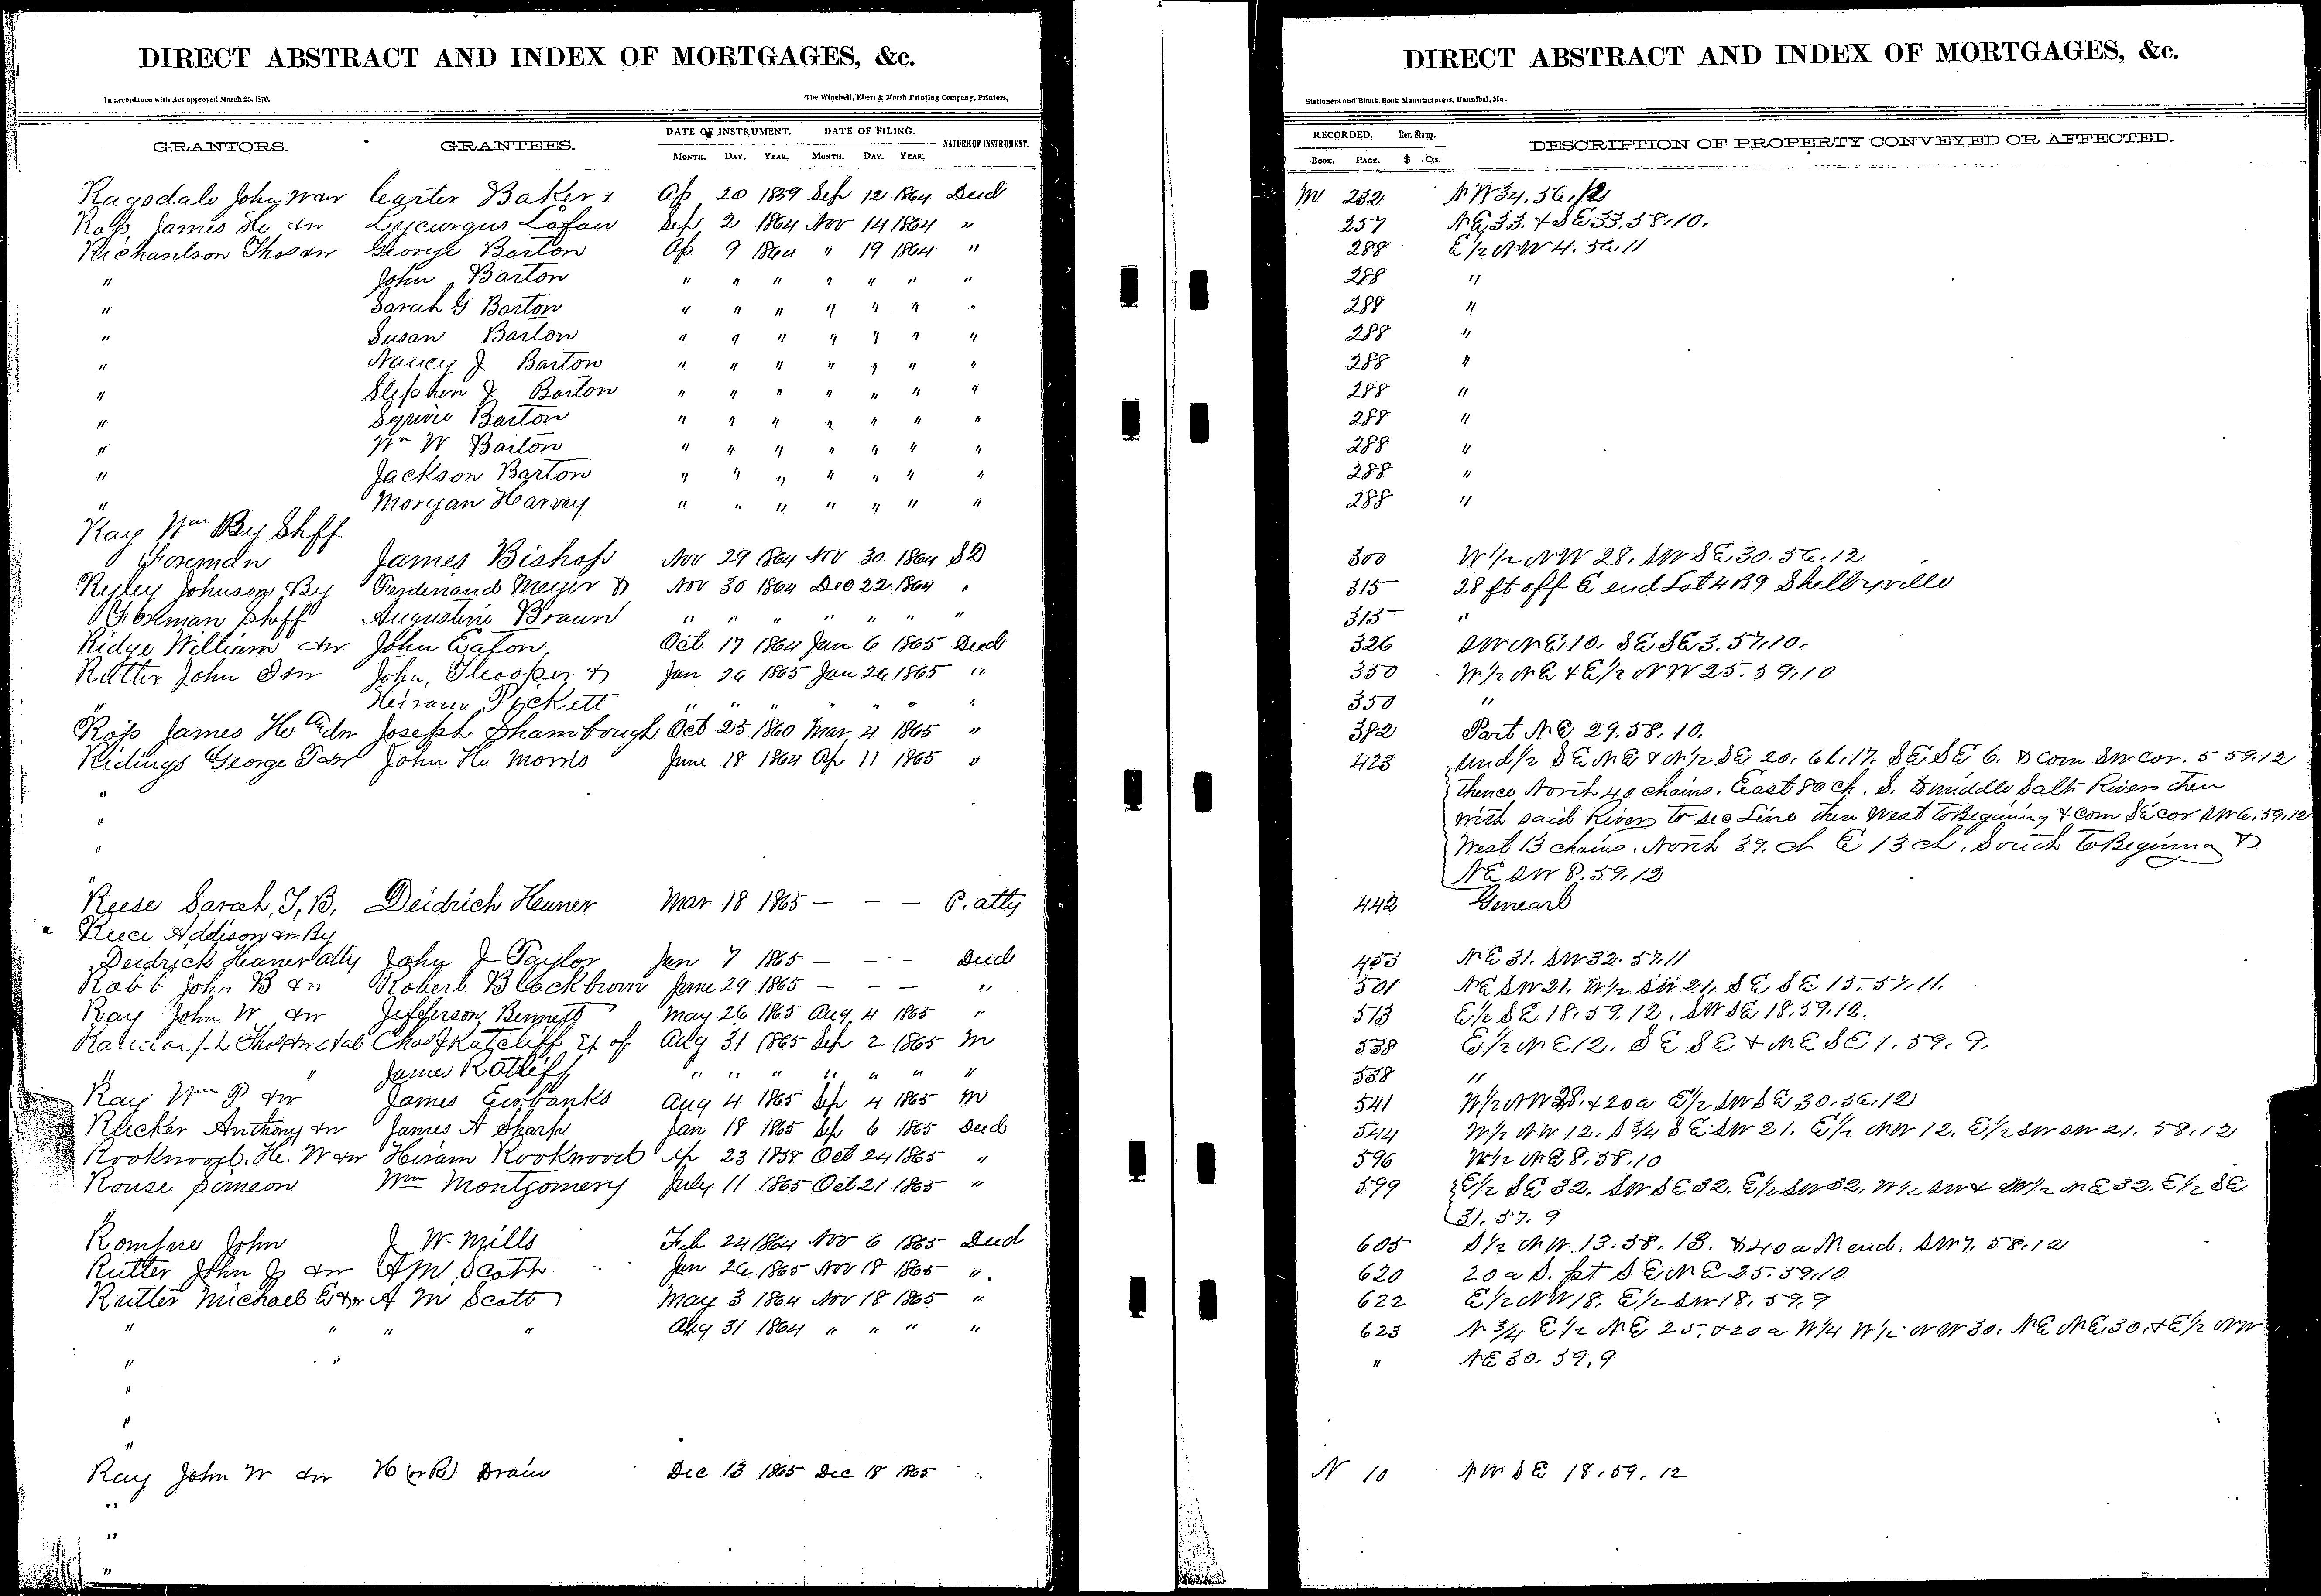 DIRECT ABSTRACT AND INDEX OF MORTGAGES, &c.
In accordance with Act approved March 25, 1870. The Winchell, Ebert & Marsh Printing Company, Printers,
GRANTORS. GRANTEES. DATE OF INSTRUMENT. DATE OF FILING. NATURE OF INSTRUMENT.
MONTH. DAY. YEAR. MONTH. DAY. YEAR.
Ragsdale John Carter Baker Ap 20 1859 Sep 12 1864 Deed
Ross James H &w Lycurgus Lafau Sep 2 1864 Nov 14 1864 "
Richardson Thos &w George Barton Ap 9 1864 " 19 1864 "
" John Barton " " " " " " "
" Sarah G Barton " " " " " " "
" Susan Barton " " " " " " "
" Nancy J Barton " " " " " " "
" Stephen J Barton " " " " " " "
" Squire Barton " " " " " " "
" Wm W Barton " " " " " " "
" Jackson Barton " " " " " " "
" Morgan Harvey " " " " " " "
Ray Wm By Shff
Foreman James Bishop Nov 29 1864 Nov 30 1864 SD
Ryley Johnson By Ferdinand Meyer & Nov 30 1864 Dec 22 1864 "
Foreman Shff Augustine Braun " " " " " " "
Ridge William &w John Eaton Oct 17 1864 Jan 6 1865 Deed
Rutter John &w John, & Jan 26 1865 Jan 26 1865 "
" Heiram Pickett " " " " "
Ross James H Joseph Shambough Oct 25 1860 Mar 4 1865 "
Ridings George &w John H Morris June 18 1864 Ap 11 1865 "
"
"
"
"
Reese Sarah, T, B, Deidrich Heuner Mar 18 1865 — — — P. atty
" Reece Addison &w By
Deidrick Heuner atty John J Taylor Jan 7 1865 — — - Deed
Robb John B &w Robert Blackburn June 29 1865 — — — "
Ray John W &w Jefferson Bennett May 26 1865 Aug 4 1865 "
Thos Chas J Ratcliff Ex of Aug 31 1865 Sep 2 1865 M
" " James Ratliff " " " " " " "
Ray Wm P &w James Ewbanks Aug 4 1865 Sep 4 1865 M
Rucker Anthony &w James A Sharp Jan 18 1865 Sep 6 1865 Deed
Rookwood, H. W &w Hiram Rookwood Ap 23 1858 Oct 24 1865 "
Rouse Simeon Wm Montgomery July 11 1865 Oct 21 1865 "
"
John J W. Mills Feb 24 1864 Nov 6 1865 Deed
Rutter John &w A M Scott Jan 26 1865 Nov 18 1865 "
Rutter Michael E &w A M Scott May 3 1864 Nov 18 1865 "
" " " " Aug 31 1864 " " " "
" "
"
"
"
Ray John W &w H (or R) Drain Dec 13 1865 Dec 18 1865
"
"
"
DIRECT ABSTRACT AND INDEX OF MORTGAGES, &c.
Stationers and Blank Book Manufacturers, Hannibal, Mo.
RECORDED. Rev. Stamp. DESCRIPTION OF PROPERTY CONVEYED OR AFFECTED.
BOOK. PAGE. $ Cts.
M 232 NW 34, 56, 12
257 NE 33. & SE 33, 58, 10.
288 E 1/2 NW 4. 56. 11
288 "
288 "
288 "
288 "
288 "
288 "
288 "
288 "
288 "
300 W 1/2 NW 28. SW SE 30. 56. 12
315 28 ft off E end Lot 4 B 9 Shelbyville
315 "
326 SW NE 10. SE SE 3. 57, 10.
350 W 1/2 NE & E 1/2 NW 25. 59, 10
350 "
382 Part NE 29. 58. 10.
423 Und 1/2 SE NE & N 1/2 SE 20. 61. 17. SE SE 6. & Com SW cor. 5 59. 12
Thence North 40 chains, East 80 ch. S. to middle Salt River then
with said River to sec Line then West to Begining & Com SE cor SW 6. 59. 12
West 13 chains. North 39. ch E 13 ch. South to Begining &
NE SW 8. 59. 12
442 Genearl
453 NE 31. SW 32. 57. 11
501 NE SW 21. W 1/2 SW 21, SE SE 15. 57. 11.
513 E 1/2 SE 18. 59. 12. SW SE 18. 59. 12.
538 E 1/2 NE 12. SE SE & NE SE 1. 59. 9.
538 "
541 W 1/2 NW 28. & 20 a E 1/2 SW SE 30. 56. 12
544 W 1/2 NW 12. S 3/4 SE SW 21. E 1/2 NW 12. E 1/2 SW SW 21. 58. 12
596 W 1/2 NE 8. 58. 10
599 E 1/2 SE 32. SW SE 32. E 1/2 SW 32. W 1/2 SW & 1/2 NE 32. E 1/2 SE
31. 57. 9
605 S 1/2 NW. 13. 58. 13. & 40 a N end. SW 7. 58. 12
620 20 a S. pt SE NE 25. 59. 10
622 E 1/2 NW 18. E 1/2 SW 18. 59. 9
623 N 3/4 E 1/2 NE 25. & 20 a W 1/4 W 1/2 NW 30. NE NE 30. & E 1/2 NW
" NE 30. 59. 9
N 10 NW SE 18. 59. 12